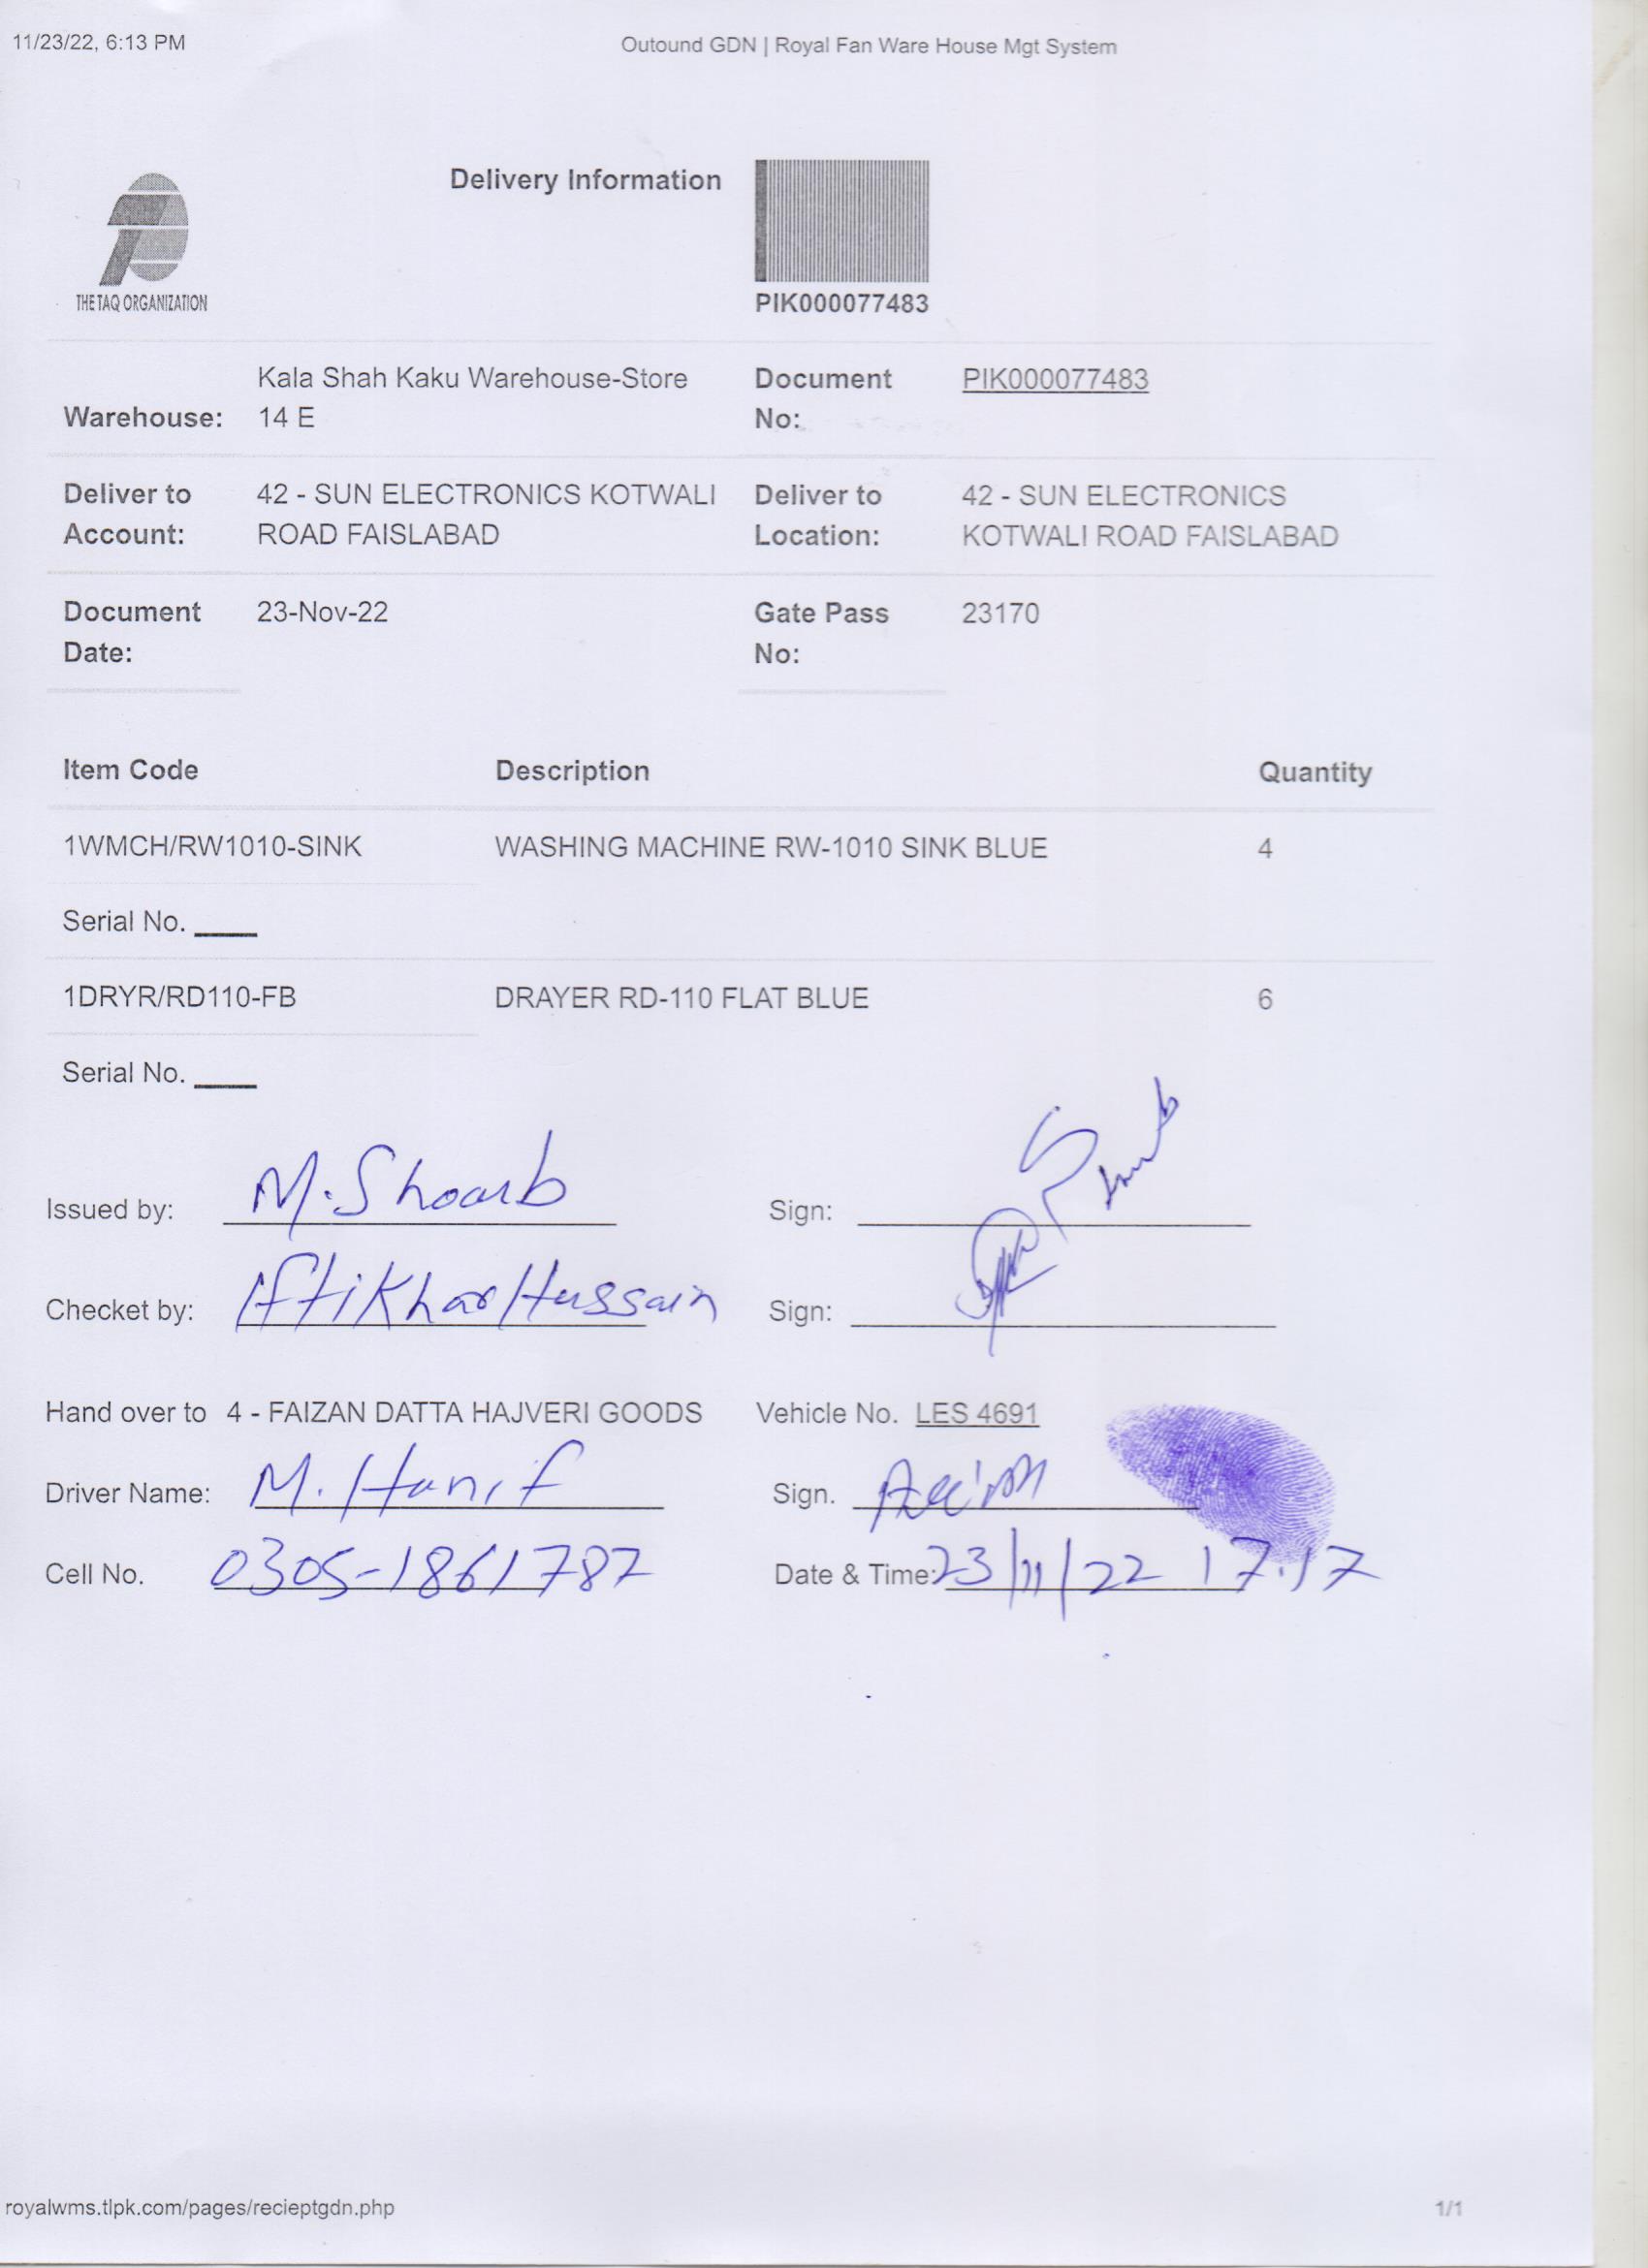 11/23/22, 6:13 PM
Outound GDN | Royal Fan Ware House Mgt System
Delivery Information
THE TAQ ORGANIZATION
PIK000077483
Warehouse: Kala Shah Kaku Warehouse-Store 14 E
Document No: PIK000077483
Deliver to Account: 42 - SUN ELECTRONICS KOTWALI ROAD FAISLABAD
Deliver to Location: 42 - SUN ELECTRONICS KOTWALI ROAD FAISLABAD
Document Date: 23-Nov-22
Gate Pass No: 23170
Item Code Description Quantity
1WMCH/RW1010-SINK WASHING MACHINE RW-1010 SINK BLUE 4
Serial No. ____
1DRYR/RD110-FB DRAYER RD-110 FLAT BLUE 6
Serial No. ____
Issued by: M. Shoaib Sign:
Checket by: Iftikhar Hussain Sign:
Hand over to 4 - FAIZAN DATTA HAJVERI GOODS Vehicle No. LES 4691
Driver Name: M. Hanif Sign.
Cell No. 0305-1861787 Date & Time: 23/11/22 17.17
royalwms.tlpk.com/pages/recieptgdn.php
1/1